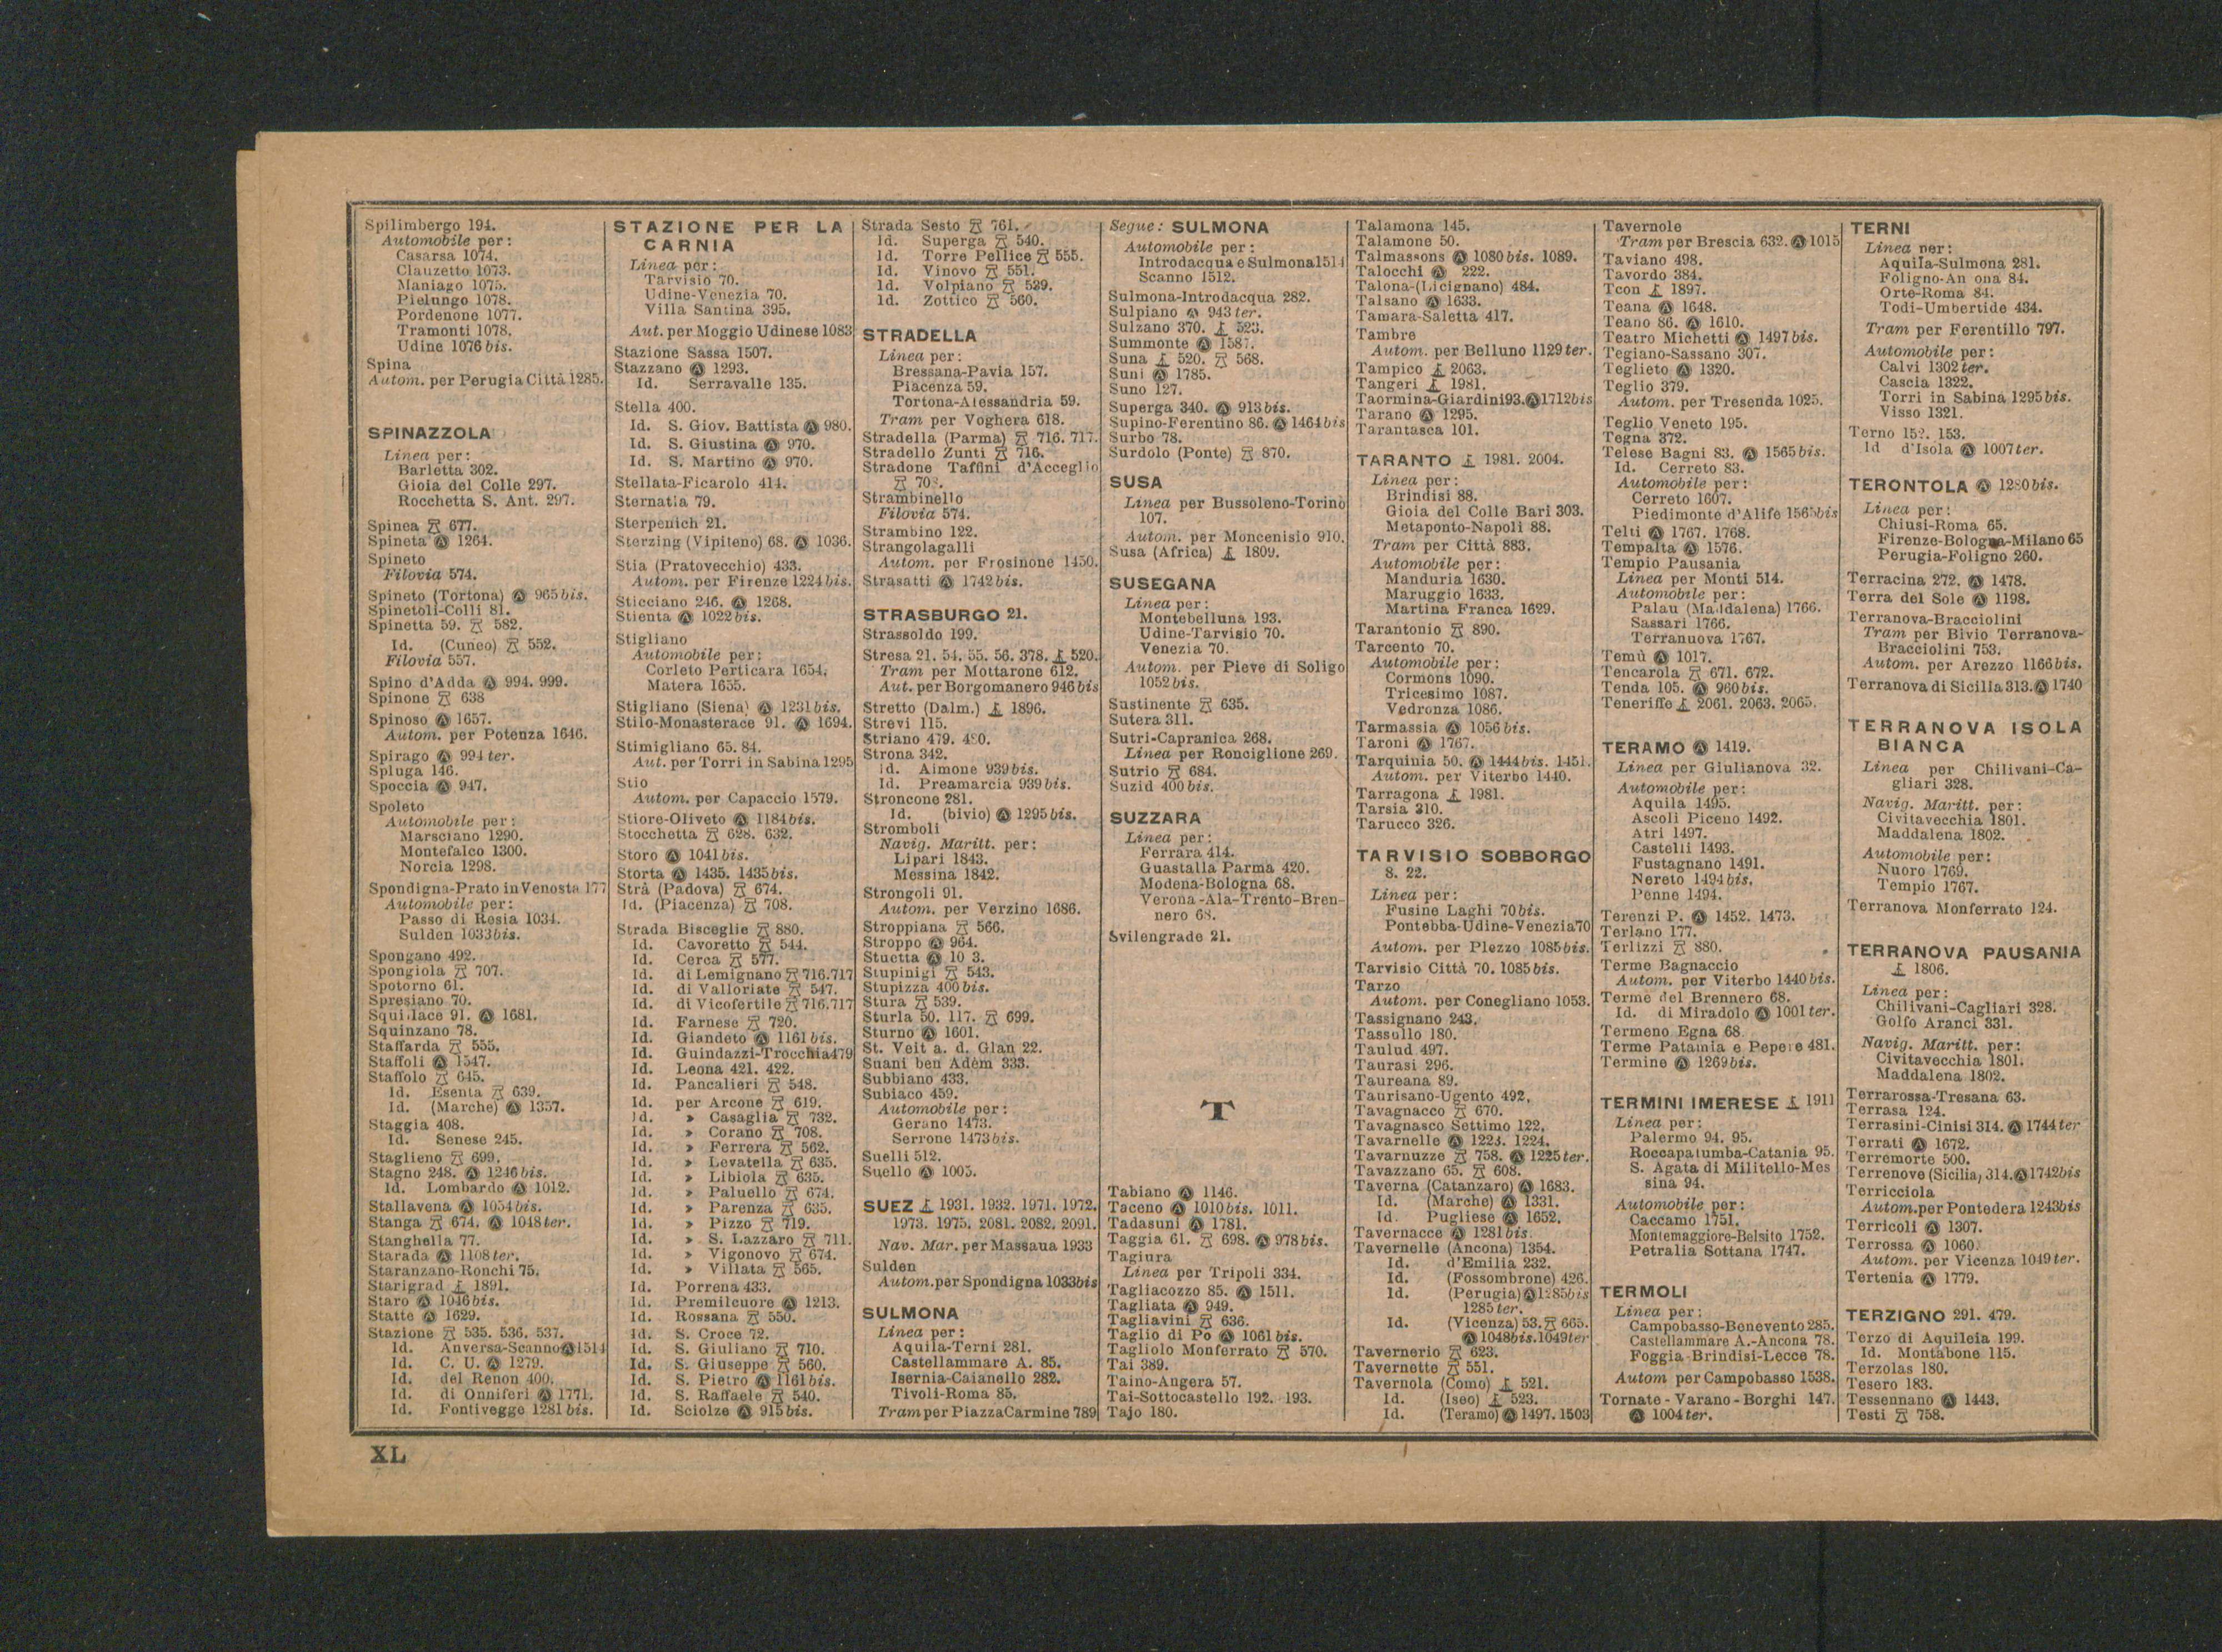 Spilimbergo 194.
Automobile per:
Casarsa 1074.
Clauzetto 1073.
Maniago 1075.
Pielungo 1078.
Pordenone 1077.
Tramonti 1078.
Udine 1076 bis.
Spina
Autom. per Perugia Città 1285.
SPINAZZOLA
Linea per:
Barletta 302.
Gioia del Colle 297.
Rocchetta S. Ant. 297.
Spinea 677.
Spineta Ⓐ 1264.
Spineto
Filovia 574.
Spineto (Tortona) Ⓐ 965 bis.
Spinetoli-Colli 81.
Spinetta 59. 582.
Id. (Cuneo) 552.
Filovia 557.
Spino d'Adda Ⓐ 994. 999.
Spinone 638
Spinoso Ⓐ 1657.
Autom. per Potenza 1646.
Spirago Ⓐ 994 ter.
Spluga 146.
Spoccia Ⓐ 947.
Spoleto
Automobile per:
Marsciano 1290.
Montefalco 1300.
Norcia 1298.
Spondigna-Prato in Venosta 177
Automobile per:
Passo di Resia 1034.
Sulden 1033bis.
Spongano 492.
Spongiola 707.
Spotorno 61.
Spresiano 70.
Squillace 91. Ⓐ 1681.
Squinzano 78.
Staffarda 555.
Staffoli Ⓐ 1547.
Staffolo 645.
Id. Esenta 639.
Id. (Marche) Ⓐ 1357.
Staggia 408.
Id. Senese 245.
Staglieno 699.
Stagno 248. Ⓐ 1246 bis.
Id. Lombardo Ⓐ 1012.
Stallavena Ⓐ 1054 bis.
Stanga 674. Ⓐ 1048 ter.
Stanghella 77.
Starada Ⓐ 1108 ter.
Staranzano-Ronchi 75.
Starigrad 1891.
Staro Ⓐ 1046 bis.
Statte Ⓐ 1629.
Stazione 535. 536. 537.
Id. Anversa-Scanno Ⓐ 1514
Id. C. U. Ⓐ 1279.
Id. del Renon 400.
Id. di Onniferi Ⓐ 1771.
Id. Fontivegge 1281 bis.
STAZIONE PER LA
CARNIA
Linea per:
Tarvisio 70.
Udine-Venezia 70.
Villa Santina 395.
Aut. per Moggio Udinese 1083
Stazione Sassa 1507.
Stazzano Ⓐ 1293.
Id. Serravalle 135.
Stella 400.
Id. S. Giov. Battista Ⓐ 980.
Id. S. Giustina Ⓐ 970.
Id. S. Martino Ⓐ 970.
Stellata-Ficarolo 414.
Sternatia 79.
Sterpenich 21.
Sterzing (Vipiteno) 68. Ⓐ 1036.
Stia (Pratovecchio) 433.
Autom. per Firenze 1224 bis.
Sticciano 246. Ⓐ 1268.
Stienta Ⓐ 1022 bis.
Stigliano
Automobile per:
Corleto Perticara 1654.
Matera 1655.
Stigliano (Siena) Ⓐ 1231 bis.
Stilo-Monasterace 91. Ⓐ 1694.
Stimigliano 65. 84.
Aut. per Torri in Sabina 1295
Stio
Autom. per Capaccio 1579.
Stiore-Oliveto Ⓐ 1184 bis.
Stocchetta 628. 632.
Storo Ⓐ 1041 bis.
Storta Ⓐ 1435. 1435 bis.
Strà (Padova) 674.
Id. (Piacenza) 708.
Strada Bisceglie 880.
Id. Cavoretto 544.
Id. Cerca 577.
Id. di Lemignano 716.717
Id. di Valloriate 547.
Id. di Vicofertile 716.717
Id. Farnese 720.
Id. Giandeto Ⓐ 1161 bis.
Id. Guindazzi-Trocchia 479
Id. Leona 421. 422.
Id. Pancalieri 548.
Id. per Arcone 619.
Id. » Casaglia 732.
Id. » Corano 708.
Id. » Ferrera 562.
Id. » Levatella 635.
Id. » Libiola 635.
Id. » Paluello 674.
Id. » Parenza 635.
Id. » Pizzo 719.
Id. » S. Lazzaro 711.
Id. » Vigonovo 674.
Id. » Villata 565.
Id. Porrena 433.
Id. Premilcuore Ⓐ 1213.
Id. Rossana 550.
Id. S. Croce 72.
Id. S. Giuliano 710.
Id. S. Giuseppe 560.
Id. S. Pietro Ⓐ 1161 bis.
Id. S. Raffaele 540.
Id. Sciolze Ⓐ 915 bis.
Strada Sesto 761.
Id. Superga 540.
Id. Torre Pellice 555.
Id. Vinovo 551.
Id. Volpiano 539.
Id. Zottico 560.
STRADELLA
Linea per:
Bressana-Pavia 157.
Piacenza 59.
Tortona-Alessandria 59.
Tram per Voghera 618.
Stradella (Parma) 716. 717.
Stradello Zunti 716.
Stradone Taffini d'Acceglio
Strambinello
Filovia 574.
Strambino 122.
Strangolagalli
Autom. per Frosinone 1450.
Strasatti Ⓐ 1742 bis.
STRASBURGO 21.
Strassoldo 199.
Stresa 21. 54. 55. 56. 378. 520.
Tram per Mottarone 612.
Aut. per Borgomanero 946 bis
Stretto (Dalm.) 1896.
Strevi 115.
Striano 479. 480.
Strona 342.
Id. Aimone 939 bis.
Id. Preamarcia 939 bis.
Stroncone 281.
Id. (bivio) Ⓐ 1295 bis.
Stromboli
Navig. Maritt. per:
Lipari 1843.
Messina 1842.
Strongoli 91.
Autom. per Verzino 1686.
Stroppiana 566.
Stroppo Ⓐ 964.
Stuetta Ⓐ
Stupinigi 543.
Stupizza 400 bis.
Stura 539.
Sturla 50. 117. 699.
Sturno Ⓐ 1601.
St. Veit a. d. Glan 22.
Suani ben Adèm 333.
Subbiano 433.
Subiaco 459.
Automobile per:
Gerano 1473.
Serrone 1473 bis.
Suelli 512.
Suello Ⓐ 1005.
SUEZ 1931. 1932. 1971. 1972.
1973. 1975. 2081. 2082. 2091.
Nav. Mar. per Massaua 1933
Sulden
Autom. per Spondigna 1033bis
SULMONA
Linea per:
Aquila-Terni 281.
Castellammare A. 85.
Isernia-Caianello 282.
Tivoli-Roma 85.
Tram per Piazza Carmine 789
Segue: SULMONA
Automobile per:
Introdacqua e Sulmona 1514
Scanno 1512.
Sulmona-Introdacqua 282.
Sulpiano Ⓐ 943 ter.
Sulzano 370. 523.
Summonte Ⓐ 1587.
Suna 520. 568.
Suni Ⓐ 1785.
Suno 127.
Superga 340. Ⓐ 913 bis.
Supino-Ferentino 86. Ⓐ 1464 bis
Surbo 78.
Surdolo (Ponte) 870.
SUSA
Linea per Bussoleno-Torino
107.
Autom. per Moncenisio 910.
Susa (Africa) 1809.
SUSEGANA
Linea per:
Montebelluna 193.
Udine-Tarvisio 70.
Venezia 70.
Autom. per Pieve di Soligo
1052 bis.
Sustinente 635.
Sutera 311.
Sutri-Capranica 268.
Linea per Ronciglione 269.
Sutrio 684.
Suzid 400 bis.
SUZZARA
Linea per:
Ferrara 414.
Guastalla Parma 420.
Modena-Bologna 68.
Verona-Ala-Trento-Bren-
nero 68.
Svilengrade 21.
T
Tabiano Ⓐ 1146.
Taceno Ⓐ 1010 bis. 1011.
Tadasuni Ⓐ 1781.
Taggia 61. 698. Ⓐ 978 bis.
Tagiura
Linea per Tripoli 334.
Tagliacozzo 85. Ⓐ 1511.
Tagliata Ⓐ 949.
Tagliavini 636.
Taglio di Po Ⓐ 1061 bis.
Tagliolo Monferrato 570.
Tai 389.
Taino-Angera 57.
Tai-Sottocastello 192. 193.
Tajo 180.
Talamona 145.
Talamone 50.
Talmassons Ⓐ 1080 bis. 1089.
Talocchi Ⓐ 222.
Talona-(Licignano) 484.
Talsano Ⓐ 1633.
Tamara-Saletta 417.
Tambre
Autom. per Belluno 1129 ter.
Tampico 2063.
Tangeri 1981.
Taormina-Giardini 93. Ⓐ 1712bis
Tarano Ⓐ 1295.
Tarantasca 101.
TARANTO 1981. 2004.
Linea per:
Brindisi 88.
Gioia del Colle Bari 303.
Metaponto-Napoli 88.
Tram per Città 883.
Automobile per:
Manduria 1630.
Maruggio 1633.
Martina Franca 1629.
Tarantonio 890.
Tarcento 70.
Automobile per:
Cormons 1090.
Tricesimo 1087.
Vedronza 1086.
Tarmassia Ⓐ 1056 bis.
Taroni Ⓐ 1767.
Tarquinia 50. Ⓐ 1444 bis. 1451.
Autom. per Viterbo 1440.
Tarragona 1981.
Tarsia 310.
Tarucco 326.
TARVISIO SOBBORGO
8. 22.
Linea per:
Fusine Laghi 70 bis.
Pontebba-Udine-Venezia 70
Autom. per Plezzo 1085 bis.
Tarvisio Città 70. 1085 bis.
Tarzo
Autom. per Conegliano 1053.
Tassignano 243.
Tassullo 180.
Taulud 497.
Taurasi 296.
Taureana 89.
Taurisano-Ugento 492.
Tavagnacco 670.
Tavagnasco Settimo 122.
Tavarnelle Ⓐ 1223. 1224.
Tavarnuzze 758. Ⓐ 1225 ter.
Tavazzano 65. 608.
Taverna (Catanzaro) Ⓐ 1683.
Id. (Marche) Ⓐ 1331.
Id. Pugliese Ⓐ 1652.
Tavernacce Ⓐ 1281 bis.
Tavernelle (Ancona) 1354.
Id. d'Emilia 232.
Id. (Fossombrone) 426.
Id. (Perugia) Ⓐ 1285bis
1285 ter.
Id. (Vicenza) 53. 665.
Ⓐ 1048bis.1049ter
Tavernerio 623.
Tavernette 551.
Tavernola (Como) 521.
Id. (Iseo) 523.
Id. (Teramo) Ⓐ 1497. 1503
Tavernole
Tram per Brescia 632. Ⓐ 1015
Taviano 498.
Tavordo 384.
Tcon 1897.
Teana Ⓐ 1648.
Teano 86. Ⓐ 1610.
Teatro Michetti Ⓐ 1497 bis.
Tegiano-Sassano 307.
Teglieto Ⓐ 1320.
Teglio 379.
Autom. per Tresenda 1025.
Teglio Veneto 195.
Tegna 372.
Telese Bagni 83. Ⓐ 1565 bis.
Id. Cerreto 83.
Automobile per:
Cerreto 1607.
Piedimonte d'Alife 1565bis
Telti Ⓐ 1767. 1768.
Tempalta Ⓐ 1576.
Tempio Pausania
Linea per Monti 514.
Automobile per:
Palau (Maddalena) 1766.
Sassari 1766.
Terranuova 1767.
Temù Ⓐ 1017.
Tencarola 671. 672.
Tenda 105. Ⓐ 960 bis.
Teneriffe 2061. 2063. 2065.
TERAMO Ⓐ 1419.
Linea per Giulianova 32.
Automobile per:
Aquila 1495.
Ascoli Piceno 1492.
Atri 1497.
Castelli 1493.
Fustagnano 1491.
Nereto 1494 bis.
Penne 1494.
Terenzi P. Ⓐ 1452. 1473.
Terlano 177.
Terlizzi 880.
Terme Bagnaccio
Autom. per Viterbo 1440 bis.
Terme del Brennero 68.
Id. di Miradolo Ⓐ 1001 ter.
Termeno Egna 68
Terme Patamia e Pepere 481.
Termine Ⓐ 1269 bis.
TERMINI IMERESE 1911
Linea per:
Palermo 94. 95.
Roccapalumba-Catania 95.
S. Agata di Militello-Mes
sina 94.
Automobile per:
Caccamo 1751.
Montemaggiore-Belsito 1752.
Petralia Sottana 1747.
TERMOLI
Linea per:
Campobasso-Benevento 285.
Castellammare A.-Ancona 78.
Foggia-Brindisi-Lecce 78.
Autom per Campobasso 1538.
Tornate - Varano - Borghi 147.
Ⓐ 1004 ter.
TERNI
Linea per:
Aquila-Sulmona 281.
Foligno-An ona 84.
Orte-Roma 84.
Todi-Umbertide 434.
Tram per Ferentillo 797.
Automobile per:
Calvi 1302 ter.
Cascia 1322.
Torri in Sabina 1295 bis.
Visso 1321.
Terno 152. 153.
Id d'Isola Ⓐ 1007 ter.
TERONTOLA Ⓐ 1280 bis.
Linea per:
Chiusi-Roma 65.
Firenze-Bologna-Milano 65
Perugia-Foligno 260.
Terracina 272. Ⓐ 1478.
Terra del Sole Ⓐ 1198.
Terranova-Bracciolini
Tram per Bivio Terranova-
Bracciolini 753.
Autom. per Arezzo 1166 bis.
Terranova di Sicilia 313. Ⓐ 1740
TERRANOVA ISOLA
BIANCA
Linea per Chilivani-Ca-
gliari 328.
Navig. Maritt. per:
Civitavecchia 1801.
Maddalena 1802.
Automobile per:
Nuoro 1769.
Tempio 1767.
Terranova Monferrato 124.
TERRANOVA PAUSANIA
1806.
Linea per:
Chilivani-Cagliari 328.
Golfo Aranci 331.
Navig. Maritt. per:
Civitavecchia 1801.
Maddalena 1802.
Terrarossa-Tresana 63.
Terrasa 124.
Terrasini-Cinisi 314. Ⓐ 1744 ter
Terrati Ⓐ 1672.
Terremorte 500.
Terrenove (Sicilia) 314. Ⓐ 1742bis
Terricciola
Autom. per Pontedera 1243bis
Terricoli Ⓐ 1307.
Terrossa Ⓐ 1060.
Autom. per Vicenza 1049 ter.
Tertenia Ⓐ 1779.
TERZIGNO 291. 479.
Terzo di Aquileia 199.
Id. Montabone 115.
Terzolas 180.
Tesero 183.
Tessennano Ⓐ 1443.
Testi 758.
XL